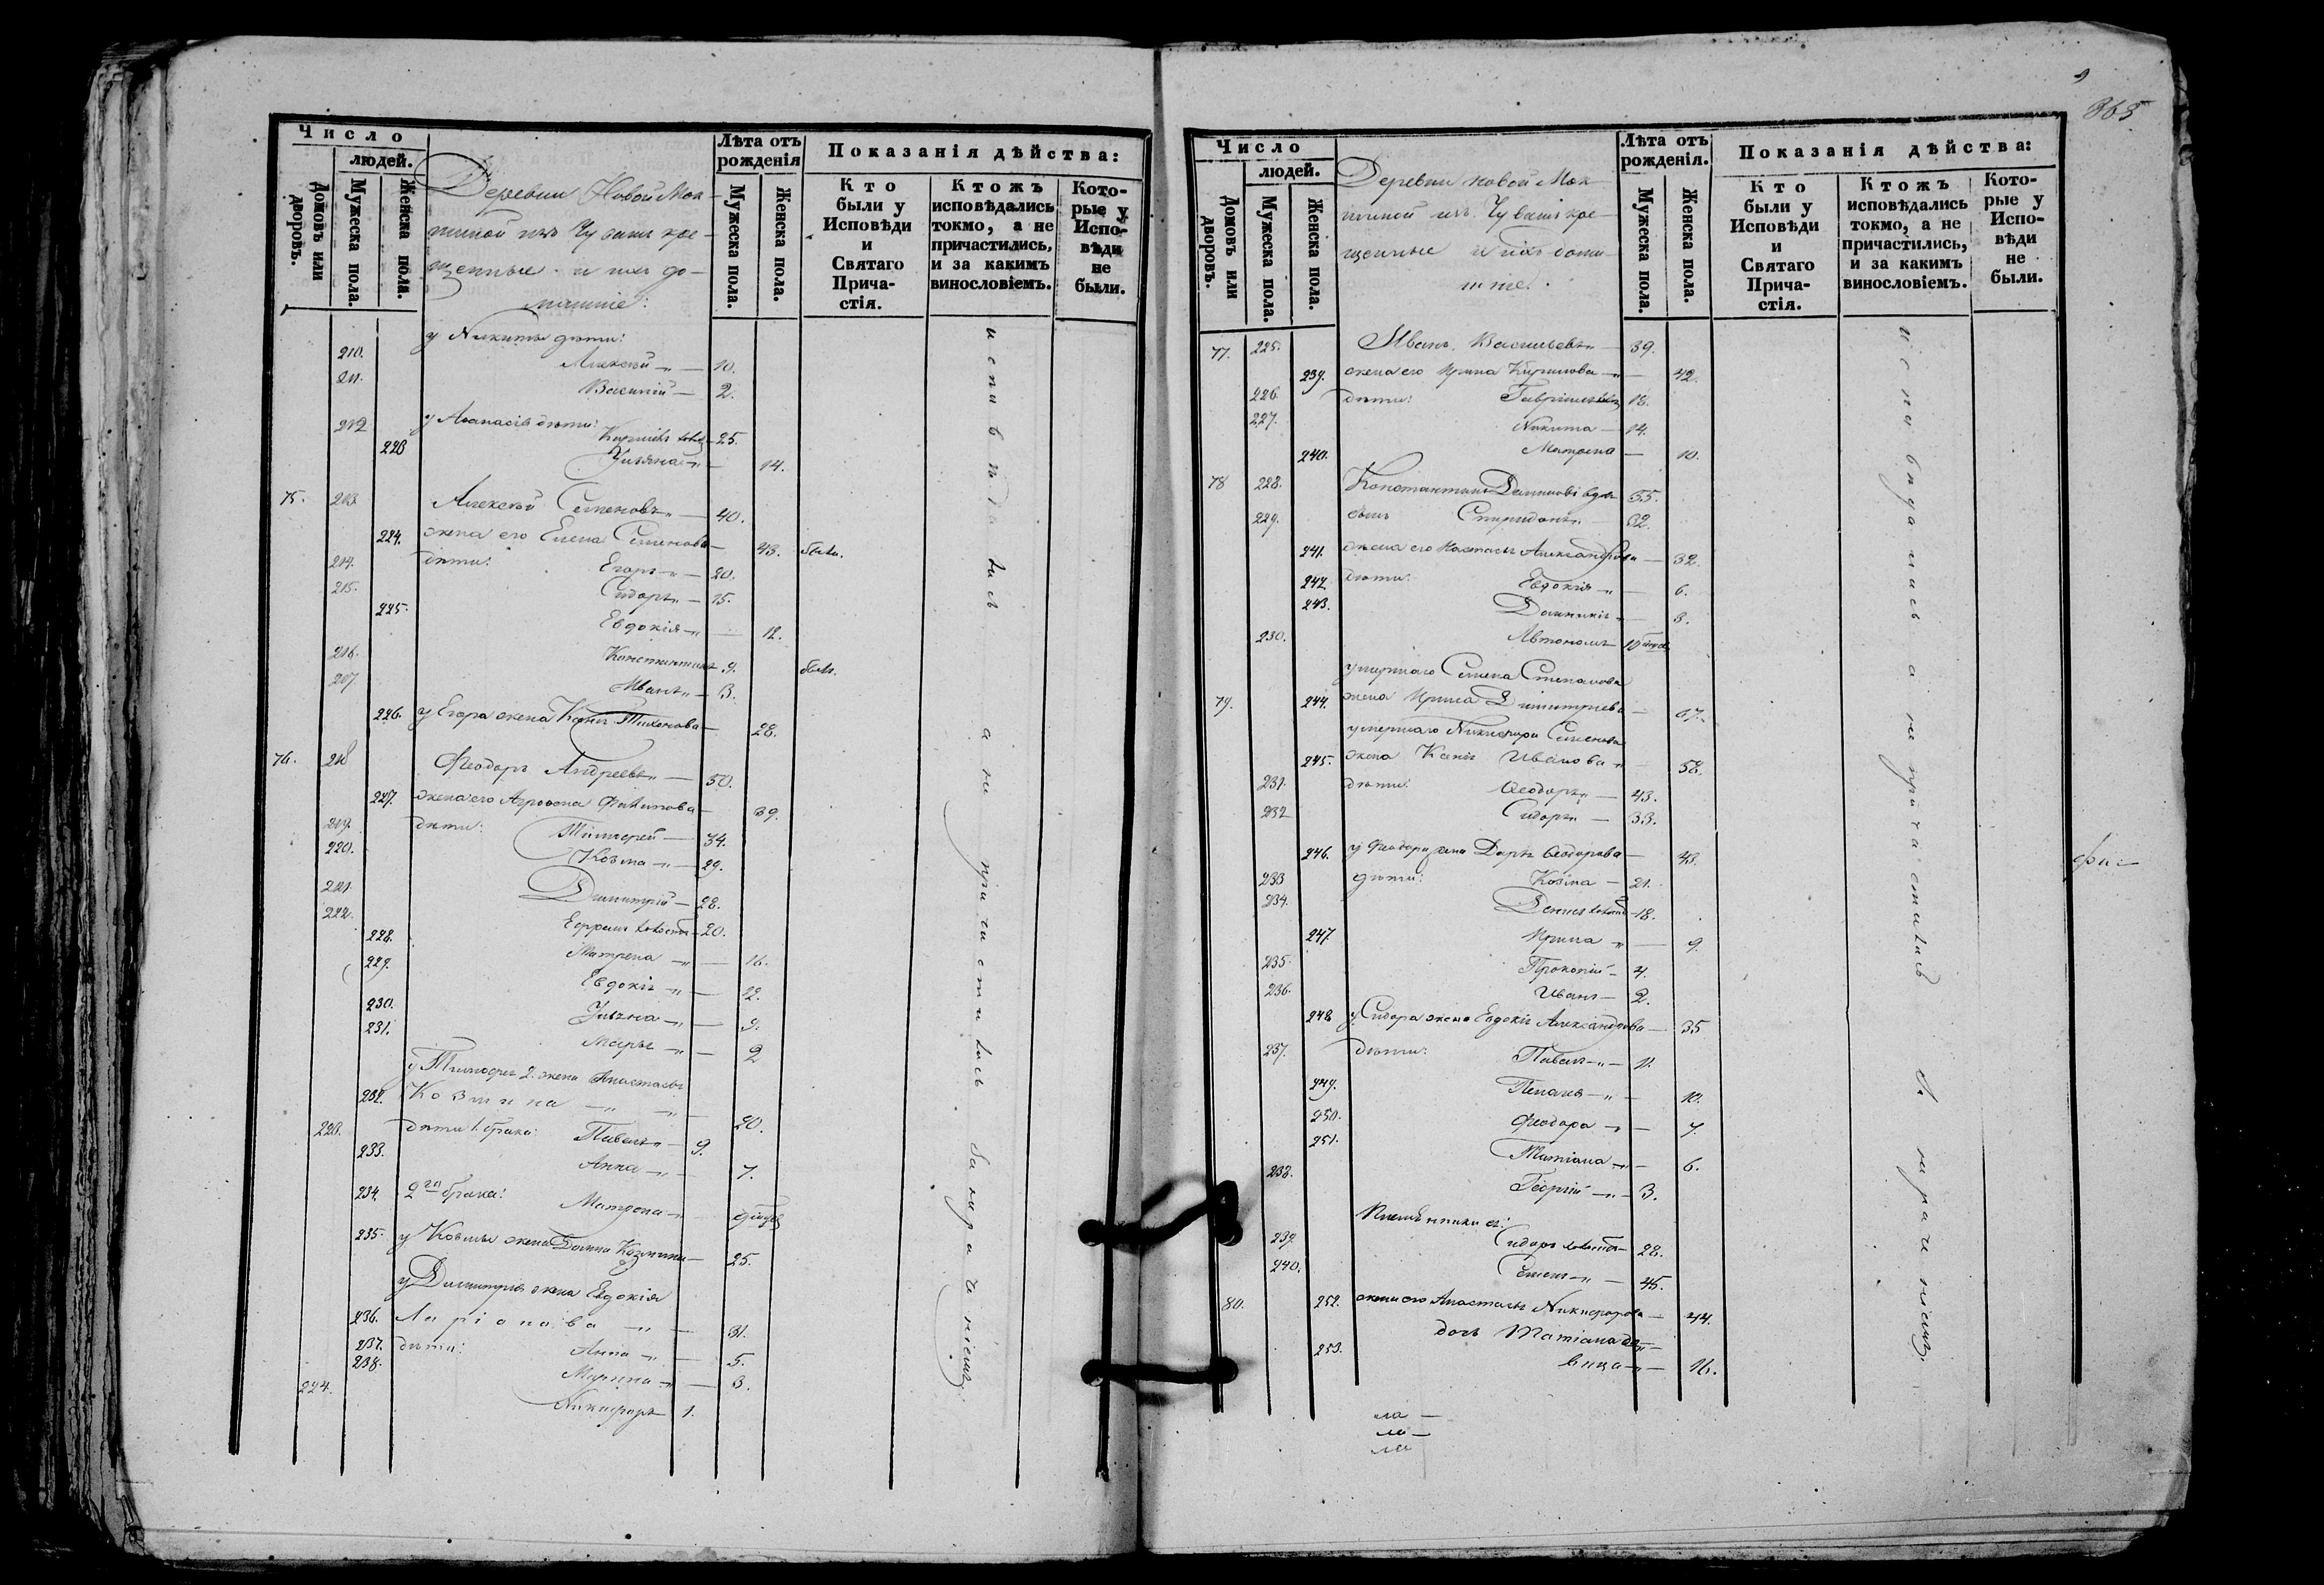 365
Число
людей.
Домовъ или дворовъ.
Мужеска пола.
Женска пола.
Деревни Новой Мок-
шиной изъ Чувашъ кре-
щенные и ихъ до-
машніе:
Лѣта отъ рожденія
Мужеска пола.
Женска пола.
Показанія дѣйства:
Кто были у Исповѣди и Святаго Прича-стія.
Ктожъ исповѣдались токмо, а не причастились, и за какимъ винословіемъ.
Кото-рые у Испо-вѣди не были.
у Никиты дѣти:
210. Алексѣй 10.
211. Василій 2.
у Аѳанасія дѣти:
212 Кирилъ 25.
223 Ульяна 14.
75. 213 Алексѣй Семеновъ 40.
224. жена его Елена Семенова 43. были.
214. дѣти: Егоръ 20.
215. Сидоръ 15.
225. Евдокія 12.
216. Константинъ 9. были.
217. Иванъ 3.
226. у Егора жена Тихонова 28.
76. 218 Феодоръ Андреевъ 50.
227. жена его Агрофена Филипова 39.
219. дѣти: Тимофей 34.
220. Козма 29.
221. Димитрій 28.
222. Ефремъ холостъ 20.
228. Матрена 16.
229. Евдокія 12.
230. Ульяна 9.
231. Марья 2
у Тимофея 2. жена Анастасья
232. Козмина 20.
223. дѣти 1. брака: Павелъ 9.
233. Анна 7.
234. 2го брака: Матрона
235. у Козмы жена Домна Козмина 25.
у Димитрія жена Евдокія
236. Ларіонова 31.
237. дѣти: Анна 5.
238. Марина 3.
224. Никифоръ 1.
исповѣдались а не причастились за нерачніемъ.
Число
людей.
Домовъ или дворовъ.
Мужеска пола.
Женска пола.
Деревни новой Мок-
шиной изъ Чувашъ кре-
щенные и ихъ дома-
шніе.
Лѣта отъ рожденія.
Мужеска пола.
Женска пола.
Показанія дѣйства:
Кто были у Исповѣди и Святаго Прича-стія.
Ктожъ исповѣдались токмо, а не причастились, и за какимъ винословіемъ.
Кото-рые у Испо-вѣди не были.
77. 225. Иванъ Васильевъ 39.
239. жена его Ирина Кирилова 42.
226. дѣти: Гавріилъ 18.
227. Никита 14.
240. Матрона 10.
78 228. Константинъ вдов 55.
229. сынъ Спиридонъ 32.
241. жена его Настасья Александрова 32.
242 дѣти: Евдокія 6.
243. 3.
230. Автономъ
умершаго Семена Степанова
79. 244. жена Ирина Димитріева 67.
умершаго Никифора Семенова
245. жена Ивановa 58.
231. дѣти: Ѳеодоръ 43.
232 Сидоръ 33.
246. у Феодора жена Дарья Ѳеодорова 43.
233 дѣти: Козма 21.
234. Денисъ холостъ 18.
247. Ирина 9.
235. Прокопій 4.
236. Иванъ 2.
248 у Сидора жена Евдокія Александрова 35
237. дѣти: Павелъ 11.
249. Пелагея 10.
250. Феодора 7.
251. Татіана 6.
238. Георгій 3.
Племянники его:
239. Сидоръ холостъ 28.
240. 45.
80. 252. жена его Анастасья Никифорова 44.
дочь Татіана дѣ-
253. вица 16.
исповѣдались а не причастились за нерачніемъ.